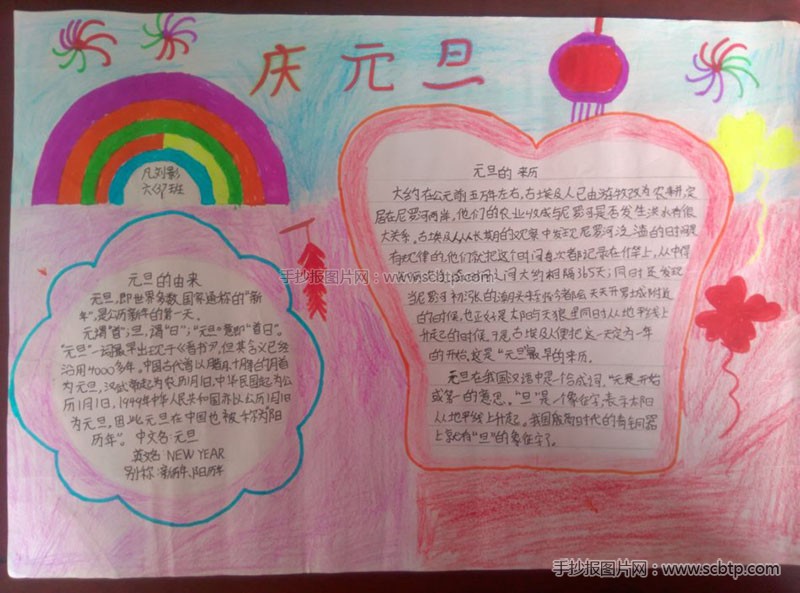 庆元旦
凡刘影
六(3)班
元旦的由来
元旦,即世界多数国家通称的“新
年”,是公历新年的第一天。
元谓“首”;旦,谓“日”;“元旦”意即“首日”。
“元旦”一词最早出现于《晋书》,但其含义已经
沿用4000多年。中国古代曾以腊月、十月等的月首
为元旦,汉武帝起为农历1月1日,中华民国起为公
历1月1日,1949年中华人民共和国亦以公历1月1日
为元旦,因此元旦在中国也被称为“阳
历年”。中文名:元旦
英文名:NEW YEAR
别称:新历年、阳历年
元旦的来历
大约在公元前五万年左右,古埃及人已由游牧改为农耕,定
居在尼罗河两岸,他们的农业收成与尼罗河是否发生洪水有很
大关系。古埃及人从长期的观察中发现,尼罗河泛滥的日时间是
有规律的,他们就把这个时间每次都记录在竹竿上,从中得
知两次泛滥时间之间大约相隔365天;同时还发现
当尼罗河初涨的潮头来到今天开罗城附近
的时候,也正好是太阳与天狼星同时从地平线上
升起的时候。于是古埃及人便把这一天定为一年
的开始,这是“元旦”最早的来历。
元旦在我国汉语中是一个合成词,“元”是开始
或第一的意思。“旦”是一个象形字,表示太阳
从地平线上升起。我国殷商时代的青铜器
上就有“旦”的象形字了。
手抄报图片网:www.scbtp.com
手抄报图片网:www.scbtp.com